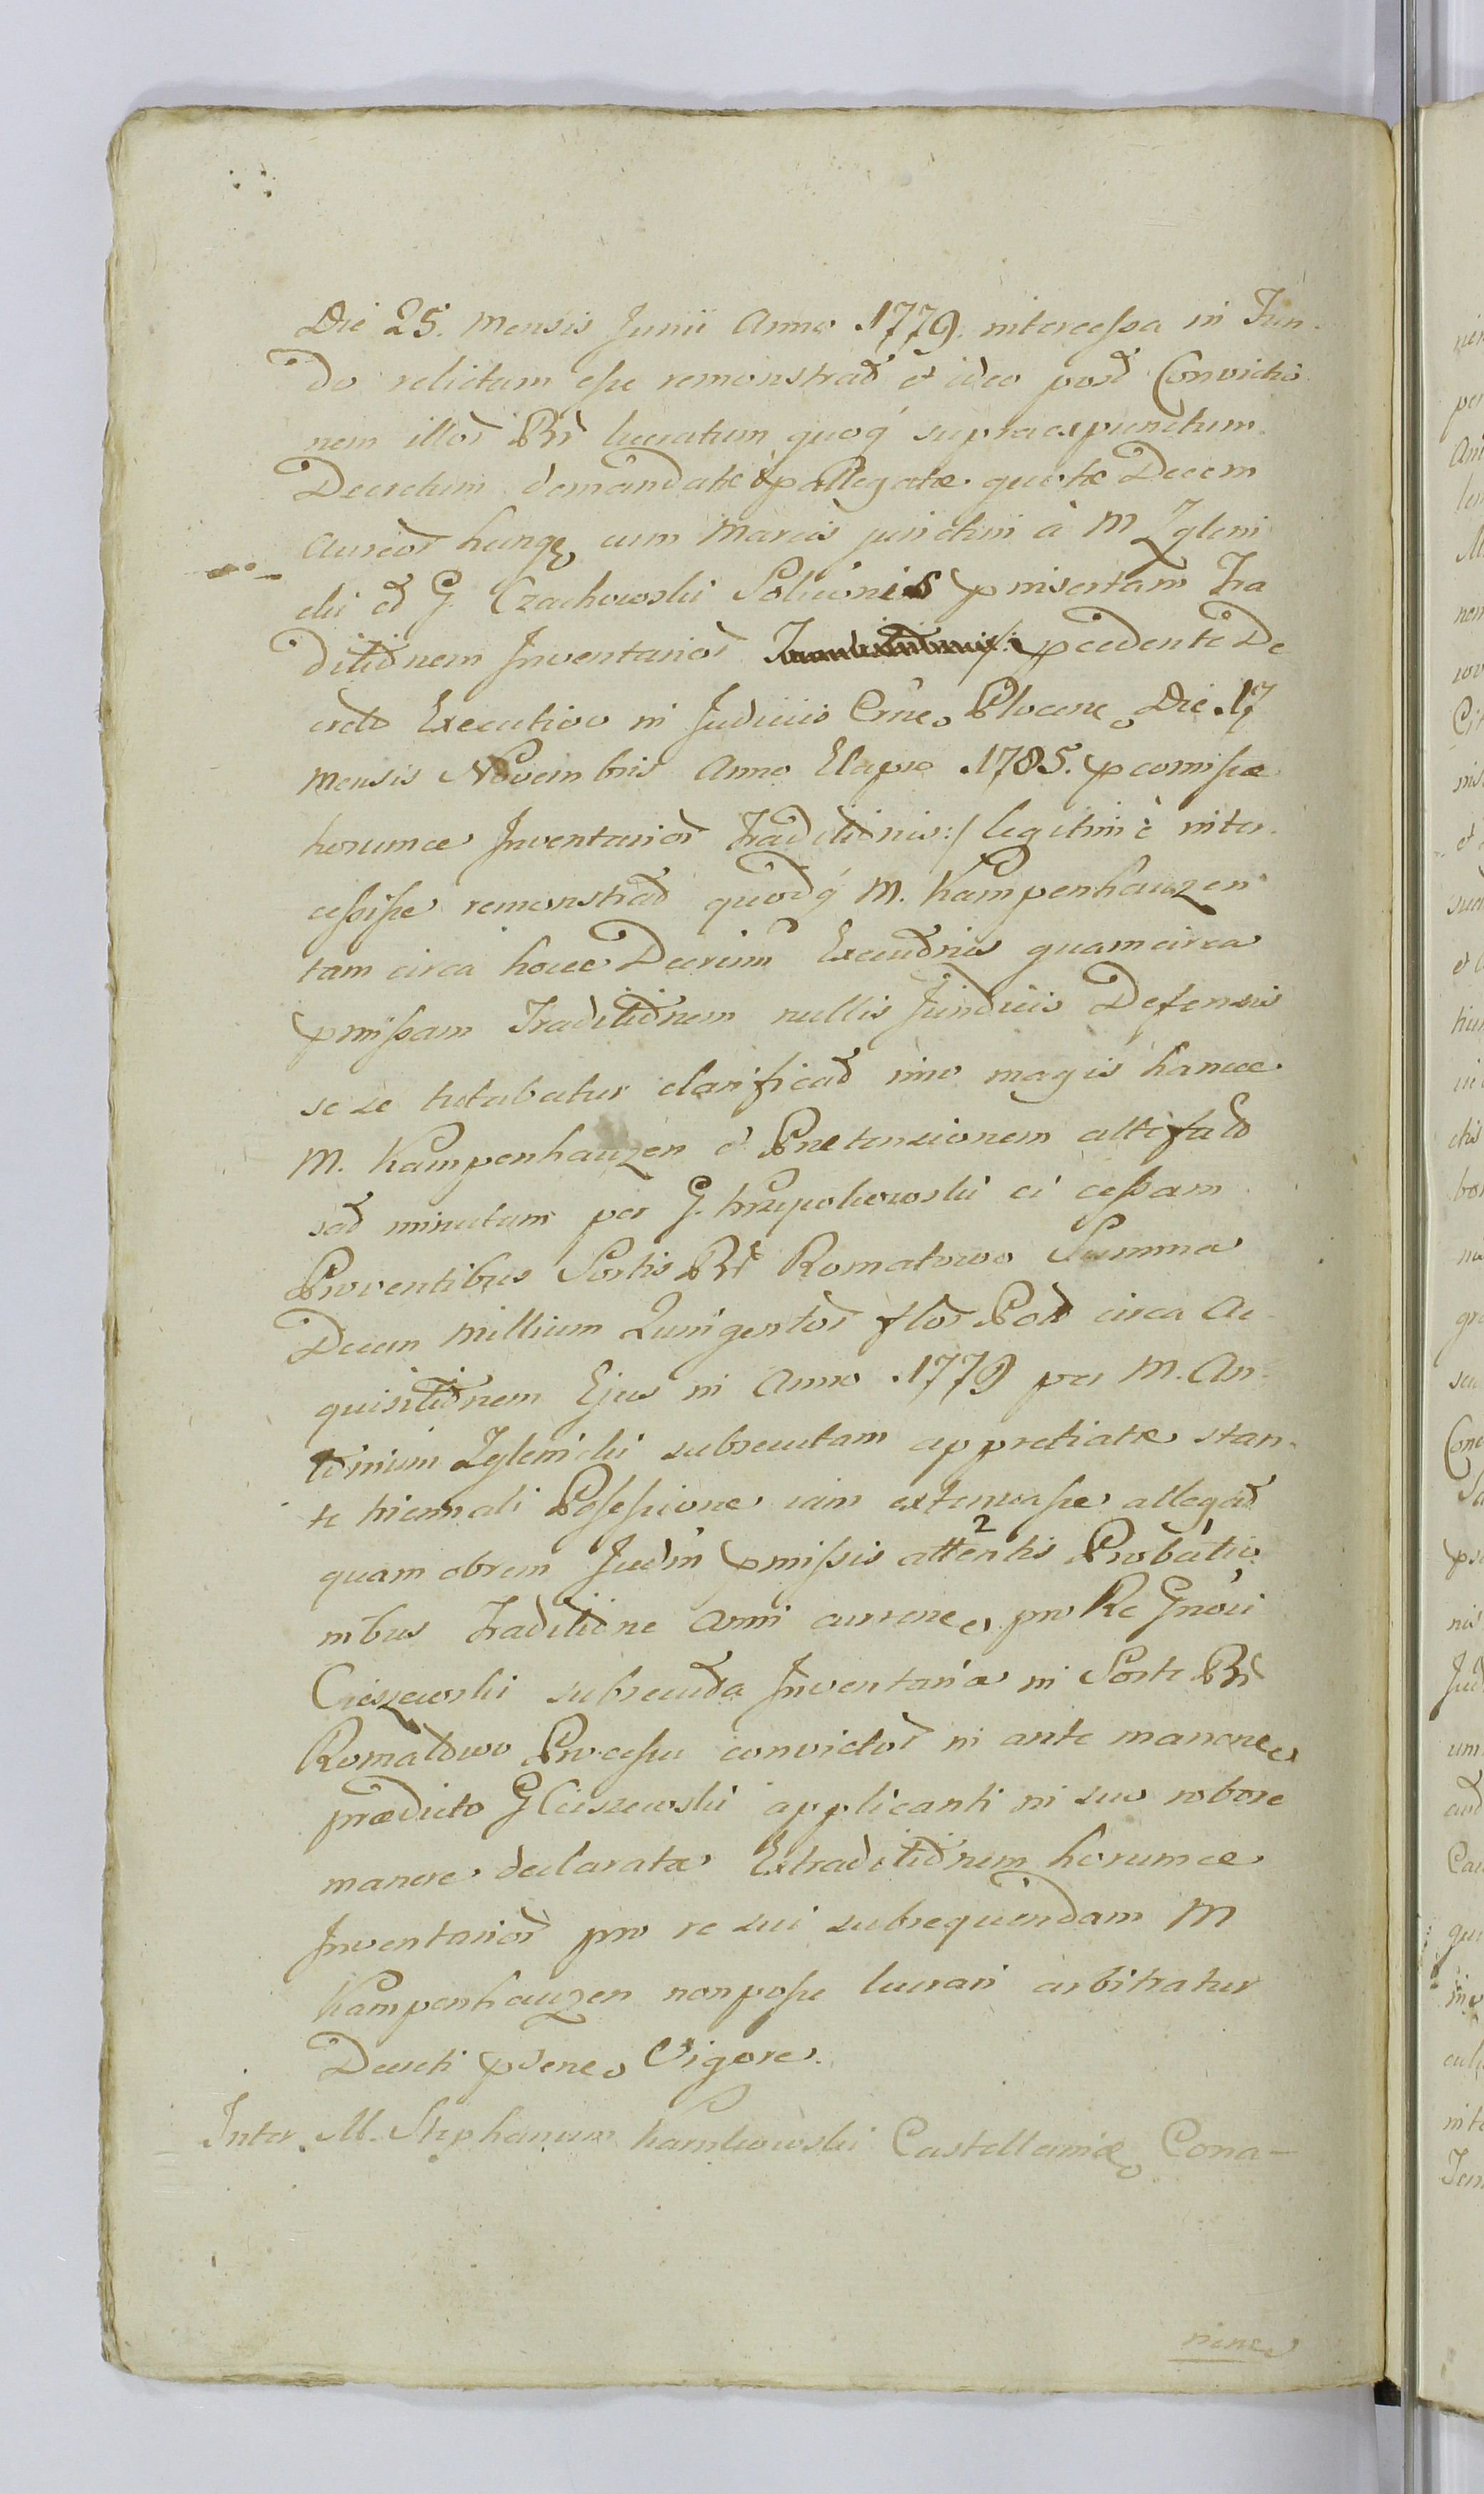 Die 25. Mensis Junii Anno .1779. intercessa in Fun-
do relictum esse remonstrat et ideo post Convictio
nem illor Br lucratum quoq supraexpunctum
Decretum demandatæ pallegatæ quotæ Decem
Aureor hungq cum Marcis junctim à M Zgleni
cki et G. Czachowski Solucionis pinsertam Tra
ditionem Inventarior /: pcedente De
creto Executivo in Judiciis Crñe Plocen Die .17
Mensis Novembris Anno Elapso .1785. pcomissæ
horumce Inventarior Traditionis :/ legitimè inter-
cessisse remonstrat quodq M. Kampenhauzen
tam circa hocce Decrum Executinis quam circa
pmissam Traditionem nullis Jundicis Defensis
sese tutabatur clarificat imo magis hancce
M. Kampenhauzen et Prætensionem alte fato
sat minutam per G. Krzykowski ei cessam
Proventibus Sortis Br Romatowo Summa
Decem Millium Quingentor flor Pol circa Ac-
quisitionem Ejus in Anno .1779 per M. An-
tonium Zglenicki subsecutam appretiatæ stan-
te triennali Possessione iam extenuasse allegat
quam obrem Judm pmissis attentis Probatio
nibus Traditione Anni curren pro Re Gnosi
Cieszewski subsecuta Inventaria in Sorte Br
Romatowo Processu convictor in ante manene
prædicto G Cieszewski applicanti in suo robore
manere declarata Extraditionem horumce
Inventarior pro re sui subsequendam M
Kampenhauzen non posse lucrari arbitratur
Decreti psen Vigore.
Inter M. Stephanum Karnkowski Castellaniæ Cona-
nene